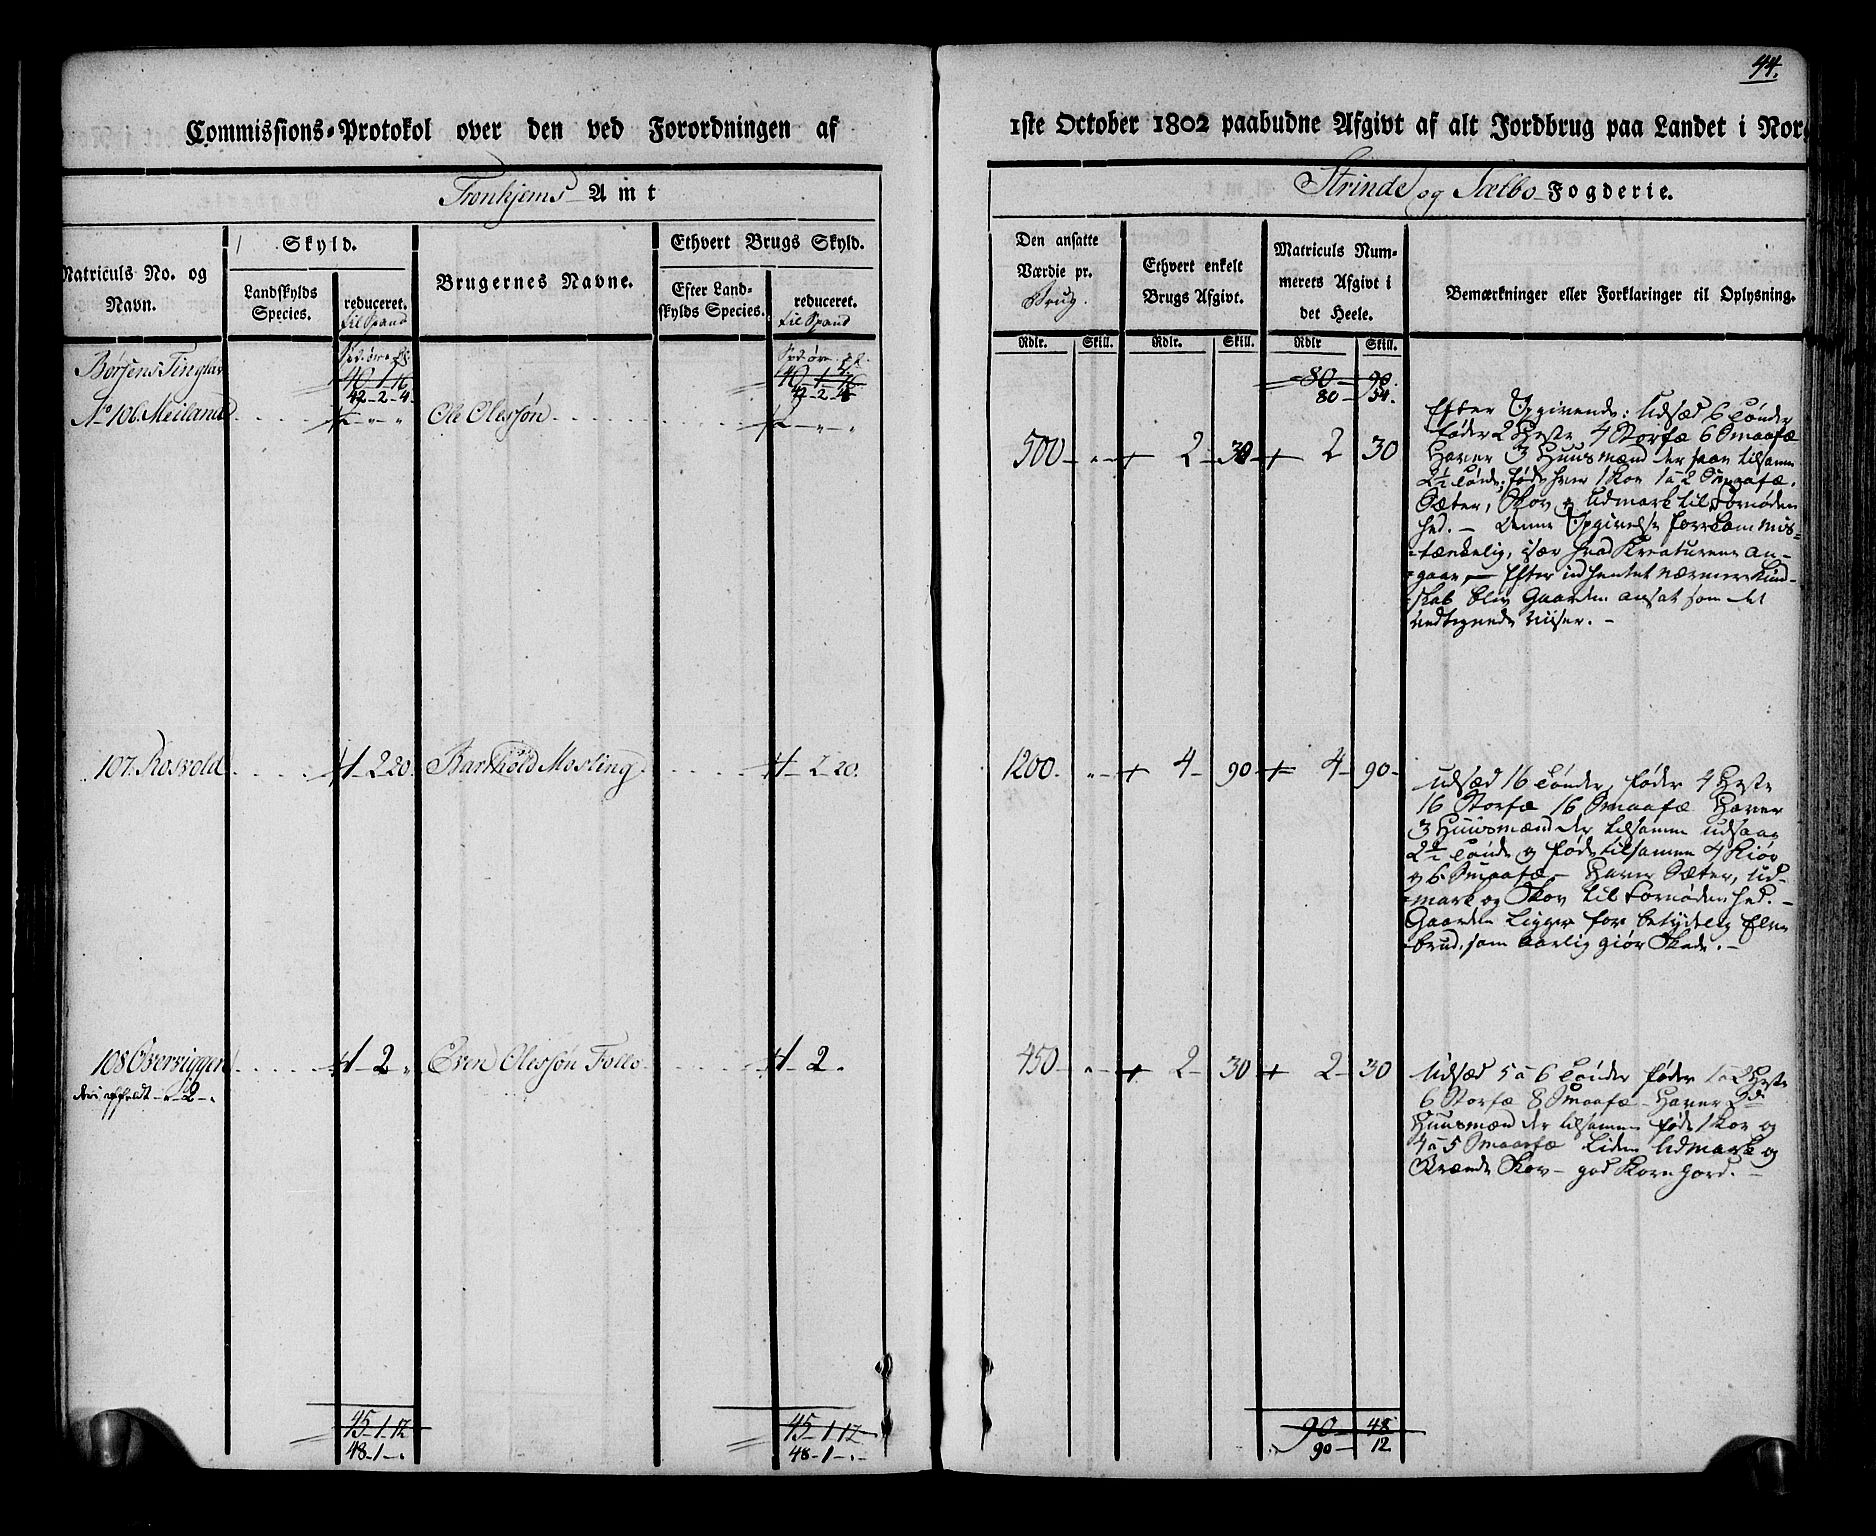 44.
Commissions-Protokol over den ved Forordningen af
1ste October 1802 paabudne Afgivt af alt Jordbrug paa Landet i Nor
Tronhjems Amt
Strinde og Sælbo Fogderie.
Matriculs No. og Navn.
Skyld.
Landskylds Species.
reduceret. til Spand
Brugernes Navne.
Ethvert Brugs Skyld.
Efter Landskylds Species.
reduceret. til Spand
Den ansatte Værdie pr. Brug
Ethvert enkelt Brugs Afgivt.
Matriculs Nummerets Afgivt i det Heele.
Bemærkninger eller Forklaringer til Oplysning.
Rdlr. Skill. Rdlr. Skill. Rdlr Skill.
Børsens Tinglav
40-1-16 40-1-16 80-90.
42-2-4 42-2-4 80-54.
No 106. Meiland Ole Olessøn
500 2-30 2 30
Efter Opgivende: Udsæd 6 Tønder
føder 2 Heste 4 Storfæ 6 Smaafæ
Haver 3 Huusmænd der saae tilsamn
2½ Tønde, føde hver 1 Koe 1 à 2 Smaafæ.
Sæter, Skov og Udmark til Fornøden
hed. - Denne Opgivelse forekom mis-
tænkelig, især hvad Kreaturene an-
gaar, - Efter indhentet nærmere Kund-
skab blev Gaarden ansat som det
vedtegnede viiser. -
107. Rosvold 1-2 20. Barthold Mosling 1-2-20.
1200. 4-90 4-90-
Udsæd 16 Tønder, føder 4 Heste
16 Storfæ 16 Smaafæ Haver
3 Huusmænd der tilsamen udsaae
2½ Tønde og føde tilsamen 4 Kiør
og 6 Smaafæ - Haver Sæter, Ud-
mark og Skov til Fornødenhed. -
Gaarden ligger for betydelig Elve
brud, som aarlig giør Skade. -
108 Overviggen 1-2 Even Olessøn Follo 1-2.
450 2-30 2-30
Udsæd 5 à 6 Tønder føder 1 à 2 Heste
6 Storfæ 8 Smaafæ - Haver 2de
Huusmænd der tilsamen føde 1 Koe og
4 à 5 Smaafæ Liden Udmark og
Brænde Skov - god Korn Jord. -
45-1-12 45-1-12 90-48
48-1-. 48-1-. 90-12